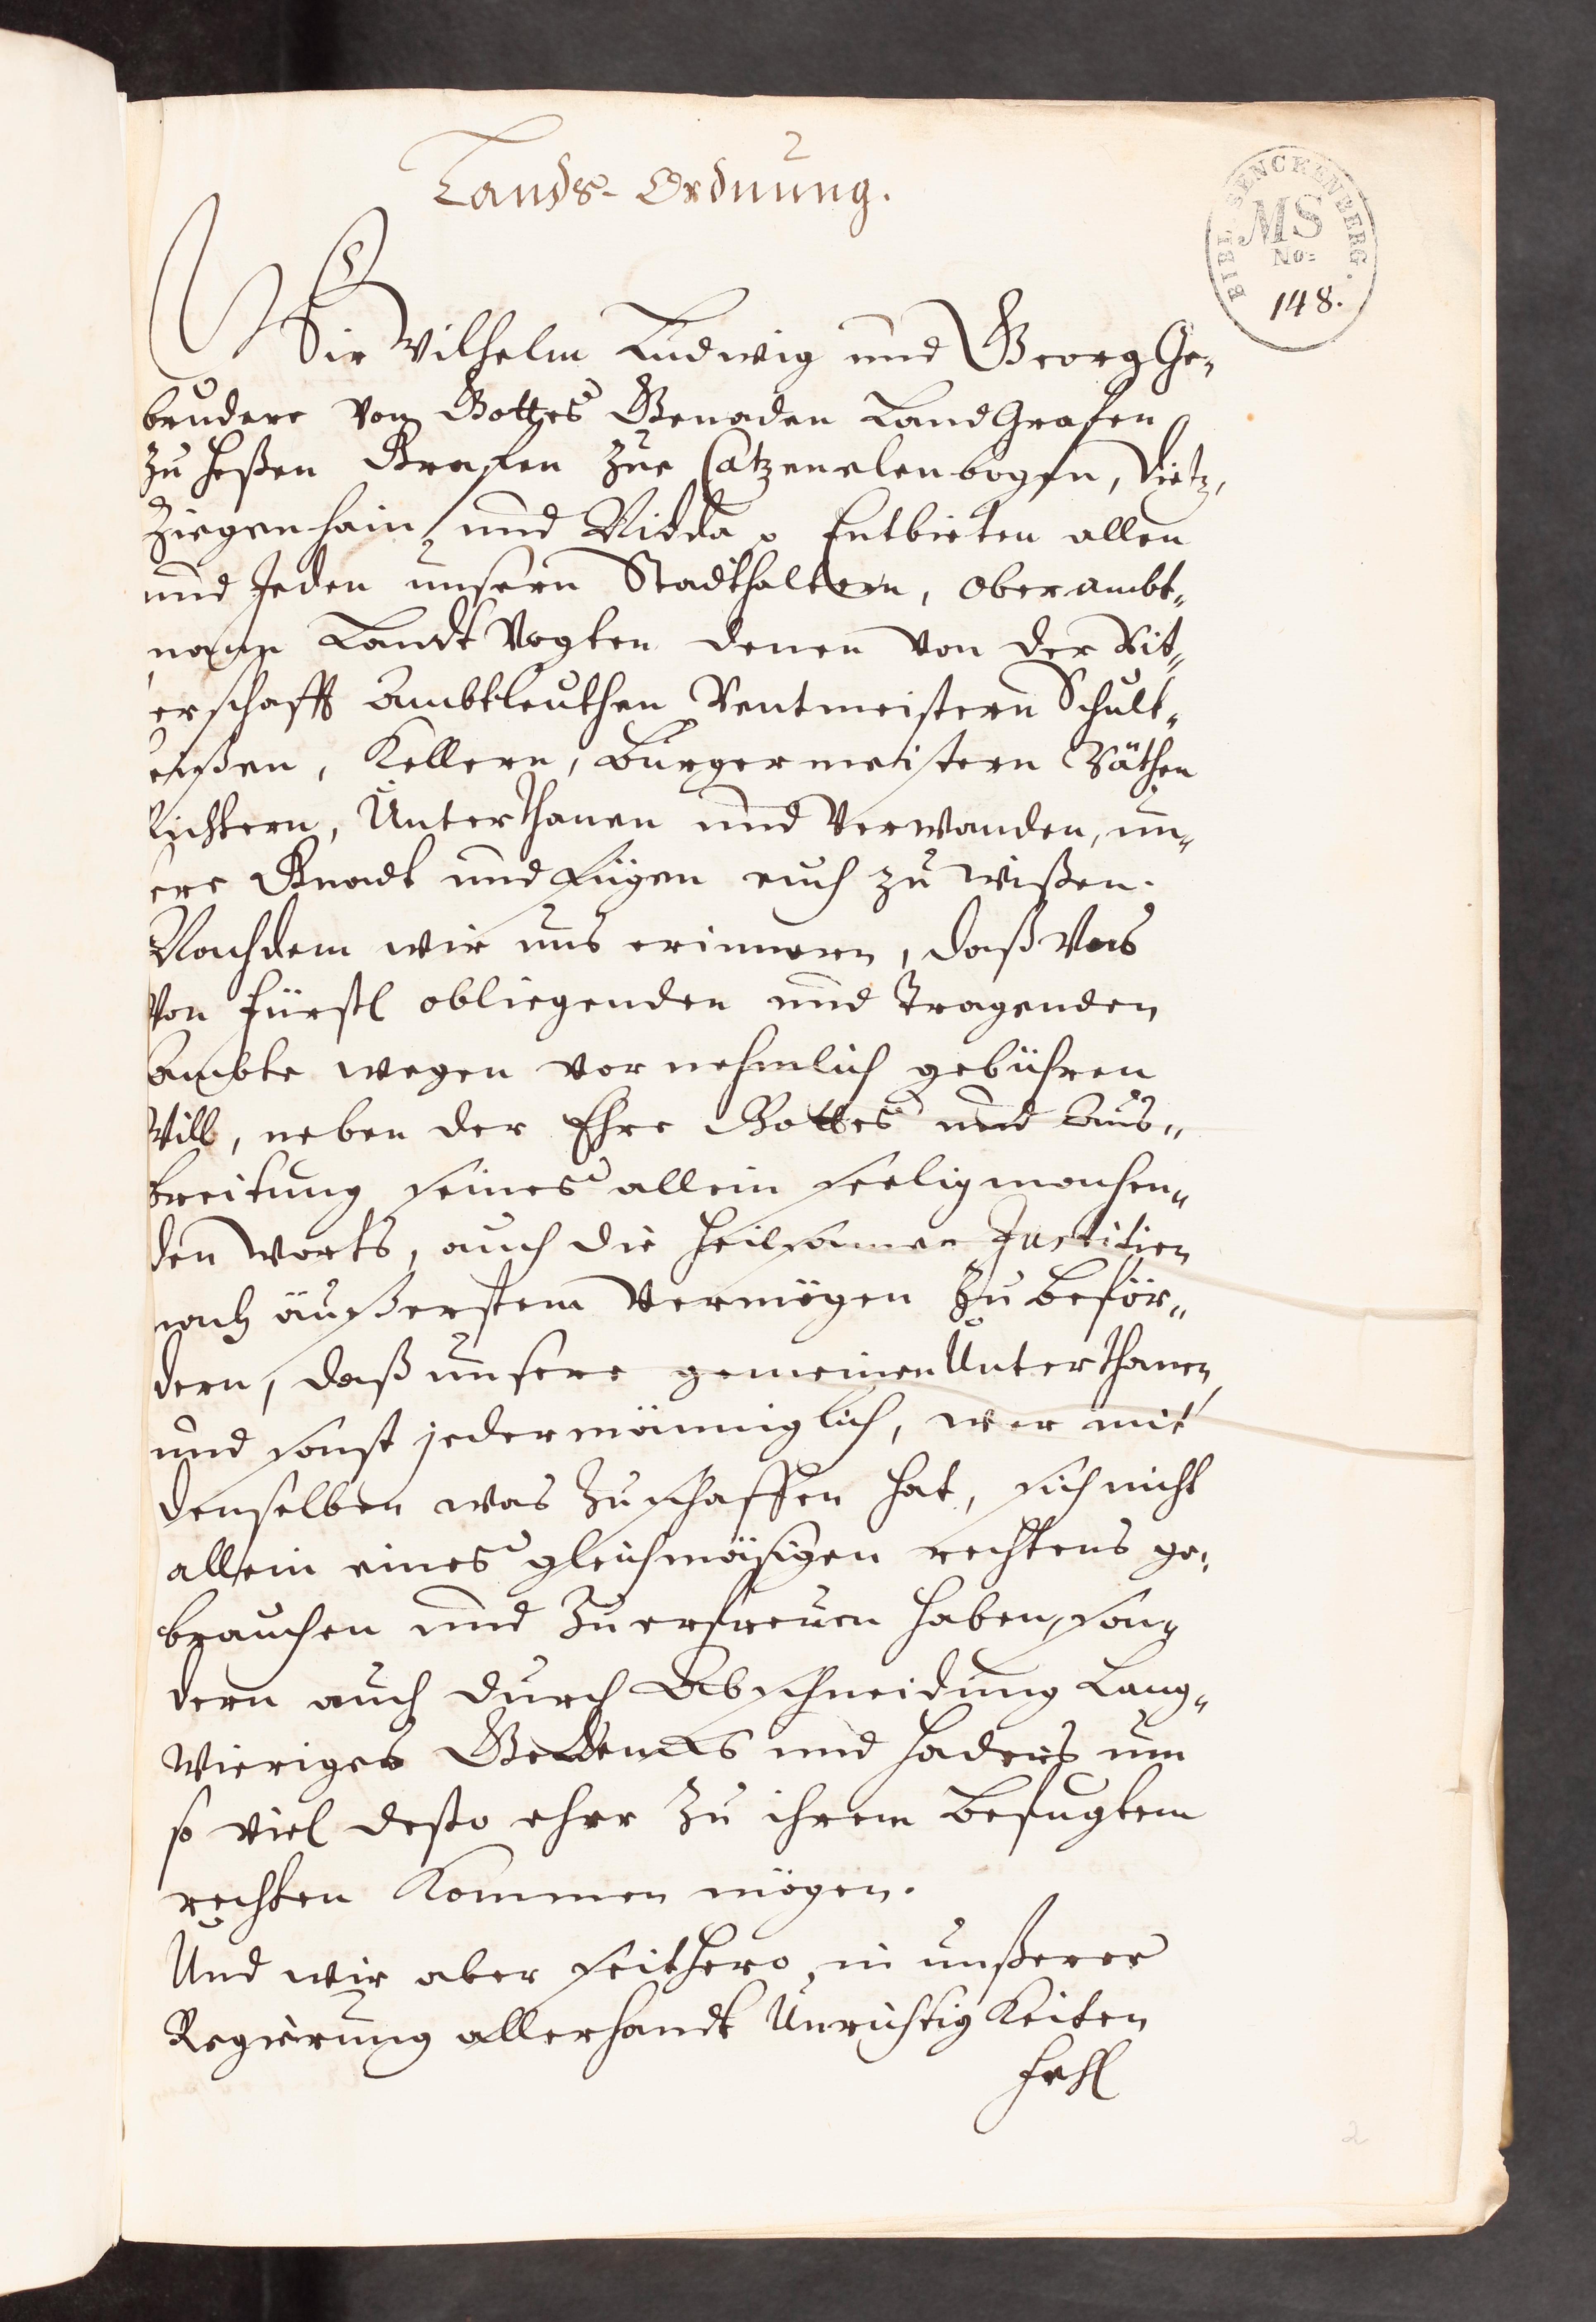 Lands-Ordnung.
BIBL. SENCKENBERG.
MS
No:
148.
Wir Wilhelm Ludwig und Georg Ge„
brudere von Gottes Genaden LandGrafen
zu Heßen Grafen zue Catzenelenbogen, Dietz,
Ziegenhain, und Nidda p Entbieten allen
und Jeden unsern Stadthaltern, Oberambt„
mann Landt Vogten denen von der Rit„
erschafft Ambtleuthen Rentmeistern Schult„
eißen, Kellern, Burgermeistern Räthen
Richtern, Unterthanen und Verwanden, un„
ere Gnadt und fügen euch zu wißen.
Nachdem wir uns erinnern, daß Uns
von fürstl obliegenden und Tragenden
Ambte wegen vornehmlich gebühren
Will, neben der Ehre Gottes und Aus„
breitung seines allein seeligmachen„
den Worts, auch die heilsamen Justitien
nach äußerstem Vermögen zu beför„
dern, daß unsere gemeinen Unterthanen
und sonst jedermänniglich, wer mit
denselben was zuschaffen hat, sich nicht
allein eines gleichmäsigen rechtens ge„
brauchen und zuerfreuen haben, son„
dern auch durch Abschneidung Lang„
wieriges und Haders um
so viel desto eher zu ihrem Befugtem
rechten Kommen mögen.
Und wir aber seithero, in unßerer
Regierung allerhandt Unrichtig Keiten
Fehl
2